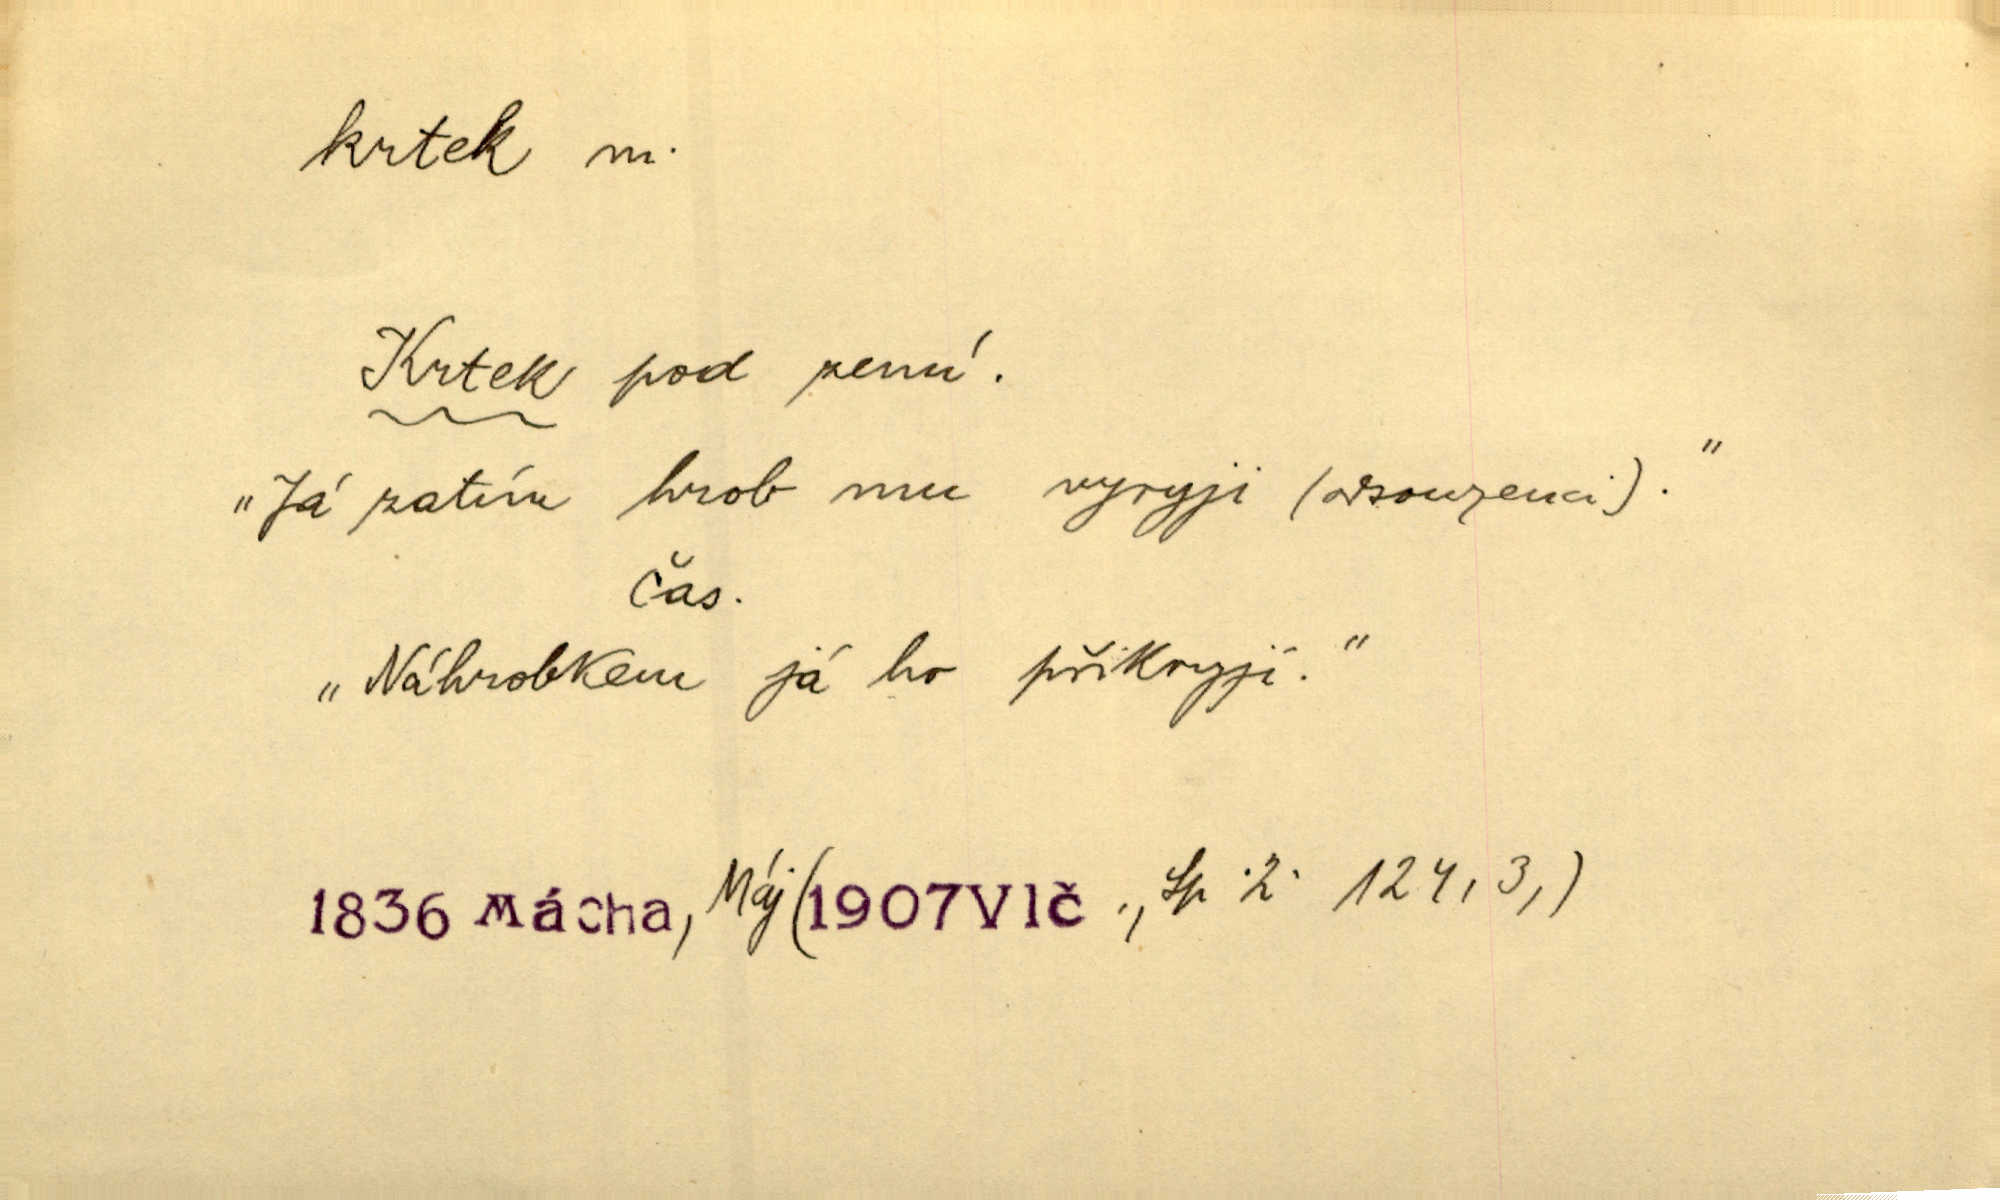 krtek m.
Krtek pod zemí.
„Já zatím hrob mu vyryji (odsouzenci)."
Čas.
„Náhrobkem já ho přikryji."
1836 Mácha, Máj (1907 Vlč., Sp. 2. 124, 3,)